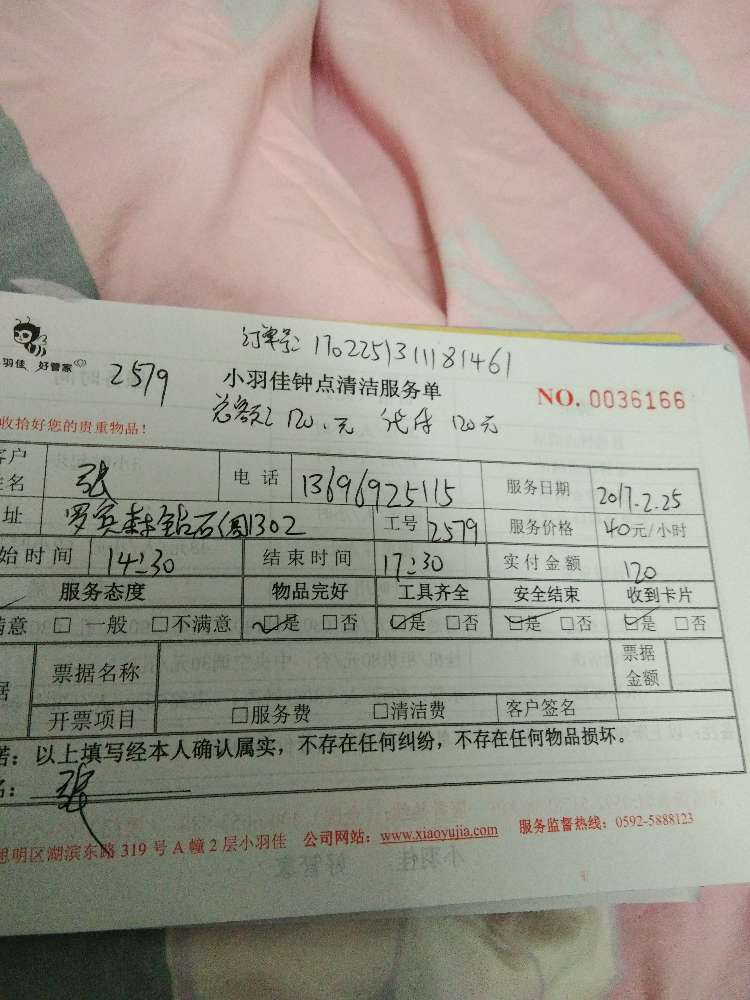 订单号: 170225131181461
羽佳 好管家
2579
小羽佳钟点清洁服务单
NO. 0036166
收拾好您的贵重物品!
总客额: 120.元 代付 120元
客户姓名 张 电话 13696925115 服务日期 2017.2.25
址 罗宾森钻石阁1302 工号 2579 服务价格 40元/小时
始时间 14:30 结束时间 17:30 实付金额 120
服务态度 物品完好 工具齐全 安全结束 收到卡片
满意 □ 一般 □不满意 ☑是 □否 ☑是 □否 ☑是 □否 ☑是 □否
据 票据名称 票据金额
开票项目 □服务费 □清洁费 客户签名
诺: 以上填写经本人确认属实,不存在任何纠纷,不存在任何物品损坏。
名: 张
思明区湖滨东路 319 号 A 幢 2 层小羽佳 公司网站: www.xiaoyujia.com 服务监督热线: 0592-5888123